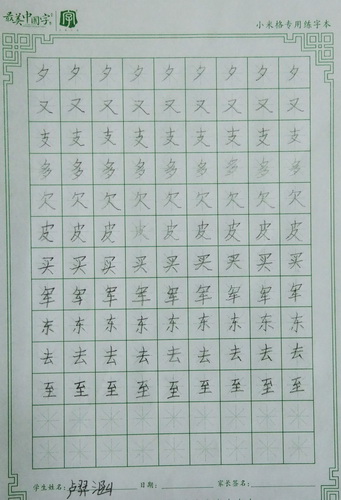 最美中国字 字 小米格专用练字本
夕 夕 夕 夕 夕 夕 夕 夕 夕
又 又 又 又 又 又 又 又 又
支 支 支 支 支 支 支 支 支
多 多 多 多 多 多 多 多 多
欠 欠 欠 欠 欠 欠 欠 欠 欠
皮 皮 皮 皮 皮 皮 皮 皮 皮
买 买 买 买 买 买 买 买 买
军 军 军 军 军 军 军 军 军
东 东 东 东 东 东 东 东 东
去 去 去 去 去 去 去 去 去
至 至 至 至 至 至 至 至 至
学生姓名: 卢 日期: 家长签名: